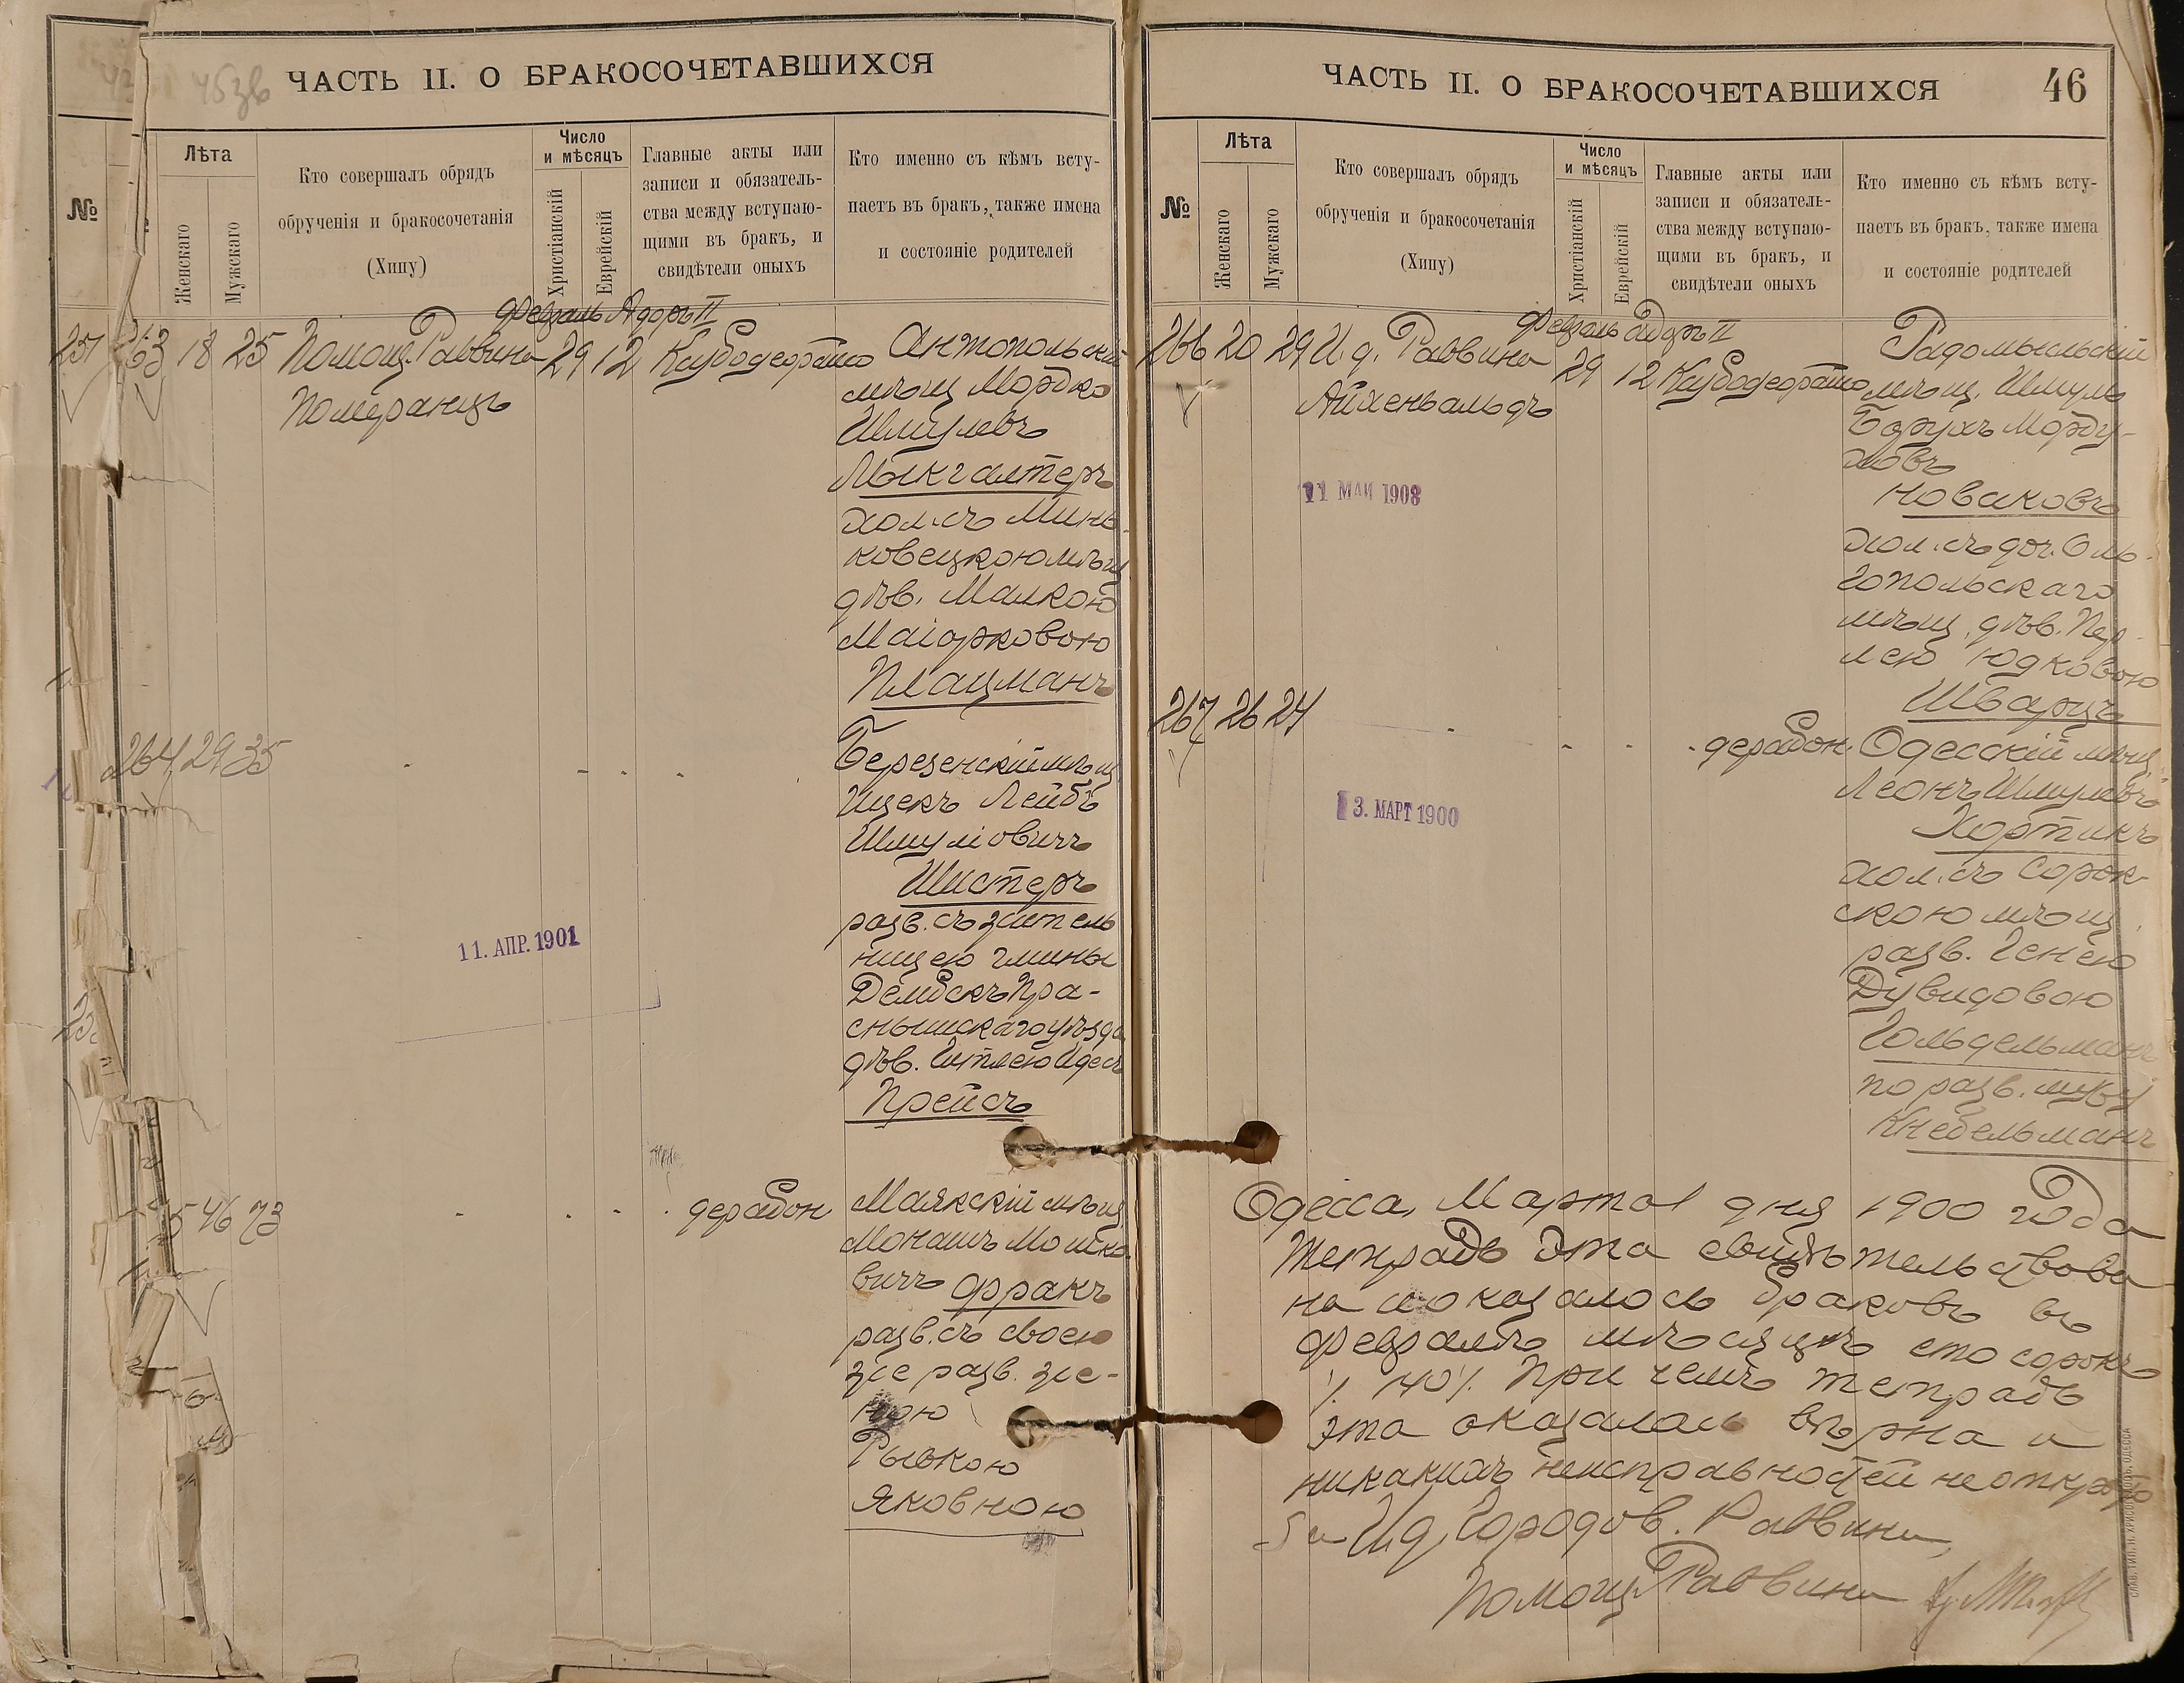 45 зв
ЧАСТЬ II. О БРАКОСОЧЕТАВШИХСЯ
№
Лѣта
Женскаго
Мужскаго
Кто совершалъ обрядъ
обрученія и бракосочетанія
(Хипу)
Число
и мѣсяцъ
Христіанскій
Еврейскій
Главные акты или
записи и обязатель-
ства между вступаю-
щими въ бракъ, и
свидѣтели оныхъ
Кто именно съ кѣмъ всту-
паетъ въ бракъ, также имена
и состояніе родителей
Февраль Адоръ II
263 18 25 Помощ. Раввина 29 12 Кубодеорайто Антопольскій
Померанцъ
мѣщ Мордко
Шмулевъ
Мыкгалтеръ
хол. съ Минь-
ковецкою мѣщ
дѣв. Малкою
Маіорковою
Плацманъ
264 29 35 - - - - Березенскій мѣщ
Ицекъ Лейбъ
Шмуліовичъ
Шистеръ
разв. съ житель
ницею гмины
Дембскъ Пра-
снышскаго уѣзда
дѣв. Гитлею Идесъ
Прейсъ
11. АПР. 1901
5 46 73 - - - дерабон Маякскій мѣщ
Монашъ Мошко-
вичъ Фракъ
разв. съ своею
же разв. же-
ною
Рывкою
Яковною
ЧАСТЬ II. О БРАКОСОЧЕТАВШИХСЯ
46
№
Лѣта
Женскаго
Мужскаго
Кто совершалъ обрядъ
обрученія и бракосочетанія
(Хипу)
Число
и мѣсяцъ
Христіанскій
Еврейскій
Главные акты или
записи и обязатель-
ства между вступаю-
щими въ бракъ, и
свидѣтели оныхъ
Кто именно съ кѣмъ всту-
паетъ въ бракъ, также имена
и состояніе родителей
Февраль Адоръ II
266 20 29 И. д. Раввина 29 12 Кубодеорайто Радомысльскій
Айхенвальдъ
мѣщ. Шмуль
Борухъ Морду-
ховъ
Новаковъ
хол. съ доч. Оль-
гопольскаго
мѣщ. дѣв. Пер-
лею Юдковою
Шварцъ
11 МАИ 1908
267 26 24 - - - - дерабон. Одесскій мѣщ.
Леонъ Шмулевъ
Хортикъ
хол. съ Сорок-
скою мѣщ.
разв. Генею
Дувидовою
Гольдельманъ
по разв. мужу
Кнебельманъ
3. МАРТ 1900
Одесса, Марта 1 дня 1900 года
Тетрадь эта свидѣтельствова
на и оказалось браковъ въ
Февралѣ мѣсяцѣ сто сорокъ
/. 140 /. При чемъ тетрадь
эта оказалась вѣрна и
никакихъ неисправностей не открыто
И. д. Городов. Раввина
Помощ. Раввина
СЛАВ. ТИП. Н. ХРИСОГЕЛОСЪ, ОДЕССА